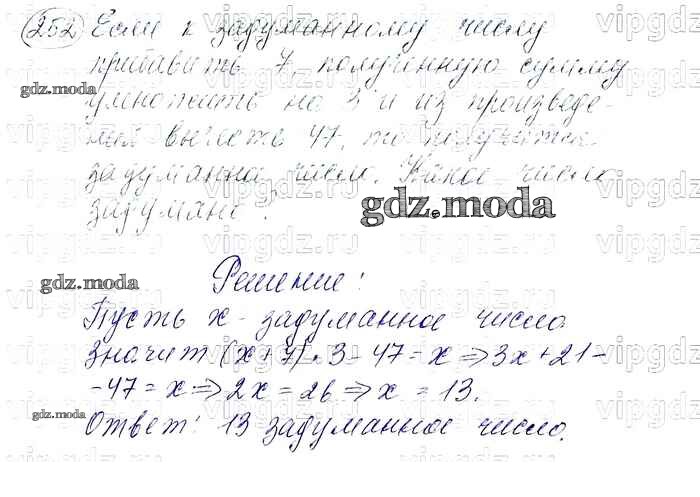 252 Если к задуманному числу
прибавить 7 полученную сумму
gdz.moda
умножить на 3 и из произведе-
ния вычесть 47, то получится
задуманное число. Какое число
задумано?
gdz.moda
Решение:
gdz.moda
Пусть x - задуманное число.
Значит (x+7)·3-47=x⇒3x+21-
-47=x⇒2x=26⇒x=13.
gdz.moda
Ответ: 13 задуманное число.